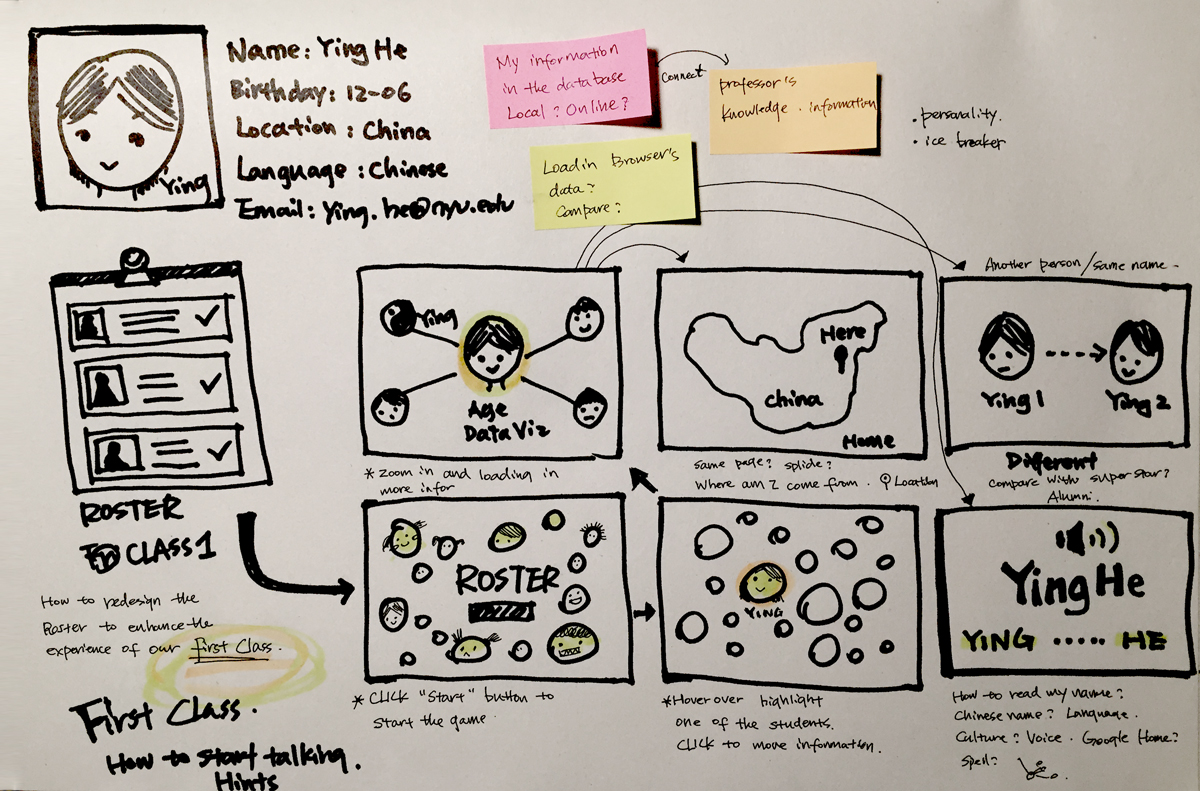 Ying
Name: Ying He
Birthday: 12-06
Location: China
Language: Chinese
Email: Ying.he@nyu.edu
My information
in the database
Local? Online?
Connect
professor's
knowledge. information
Loadin Browser's
data?
Compare?
. personality.
. ice breaker
ROSTER
CLASS 1
How to redesign the
Roster to enhance the
experience of our First Class.
First Class.
How to start talking.
Hints
Ying
Age
Data Viz
* Zoom in and loading in
more infor
Here
China
Home
same page? splide?
Where am I come from. Location
Another person/same name -
Ying 1
Ying 2
Different
compare with superstar?
Alumni.
ROSTER
* CLICK "Start" button to
start the game.
YING
* Hover over highlight
one of the students.
CLICK to move information.
Ying He
YING ..... HE
How to read my name?
Chinese name? Language.
Culture? Voice. Google Home?
Spell?